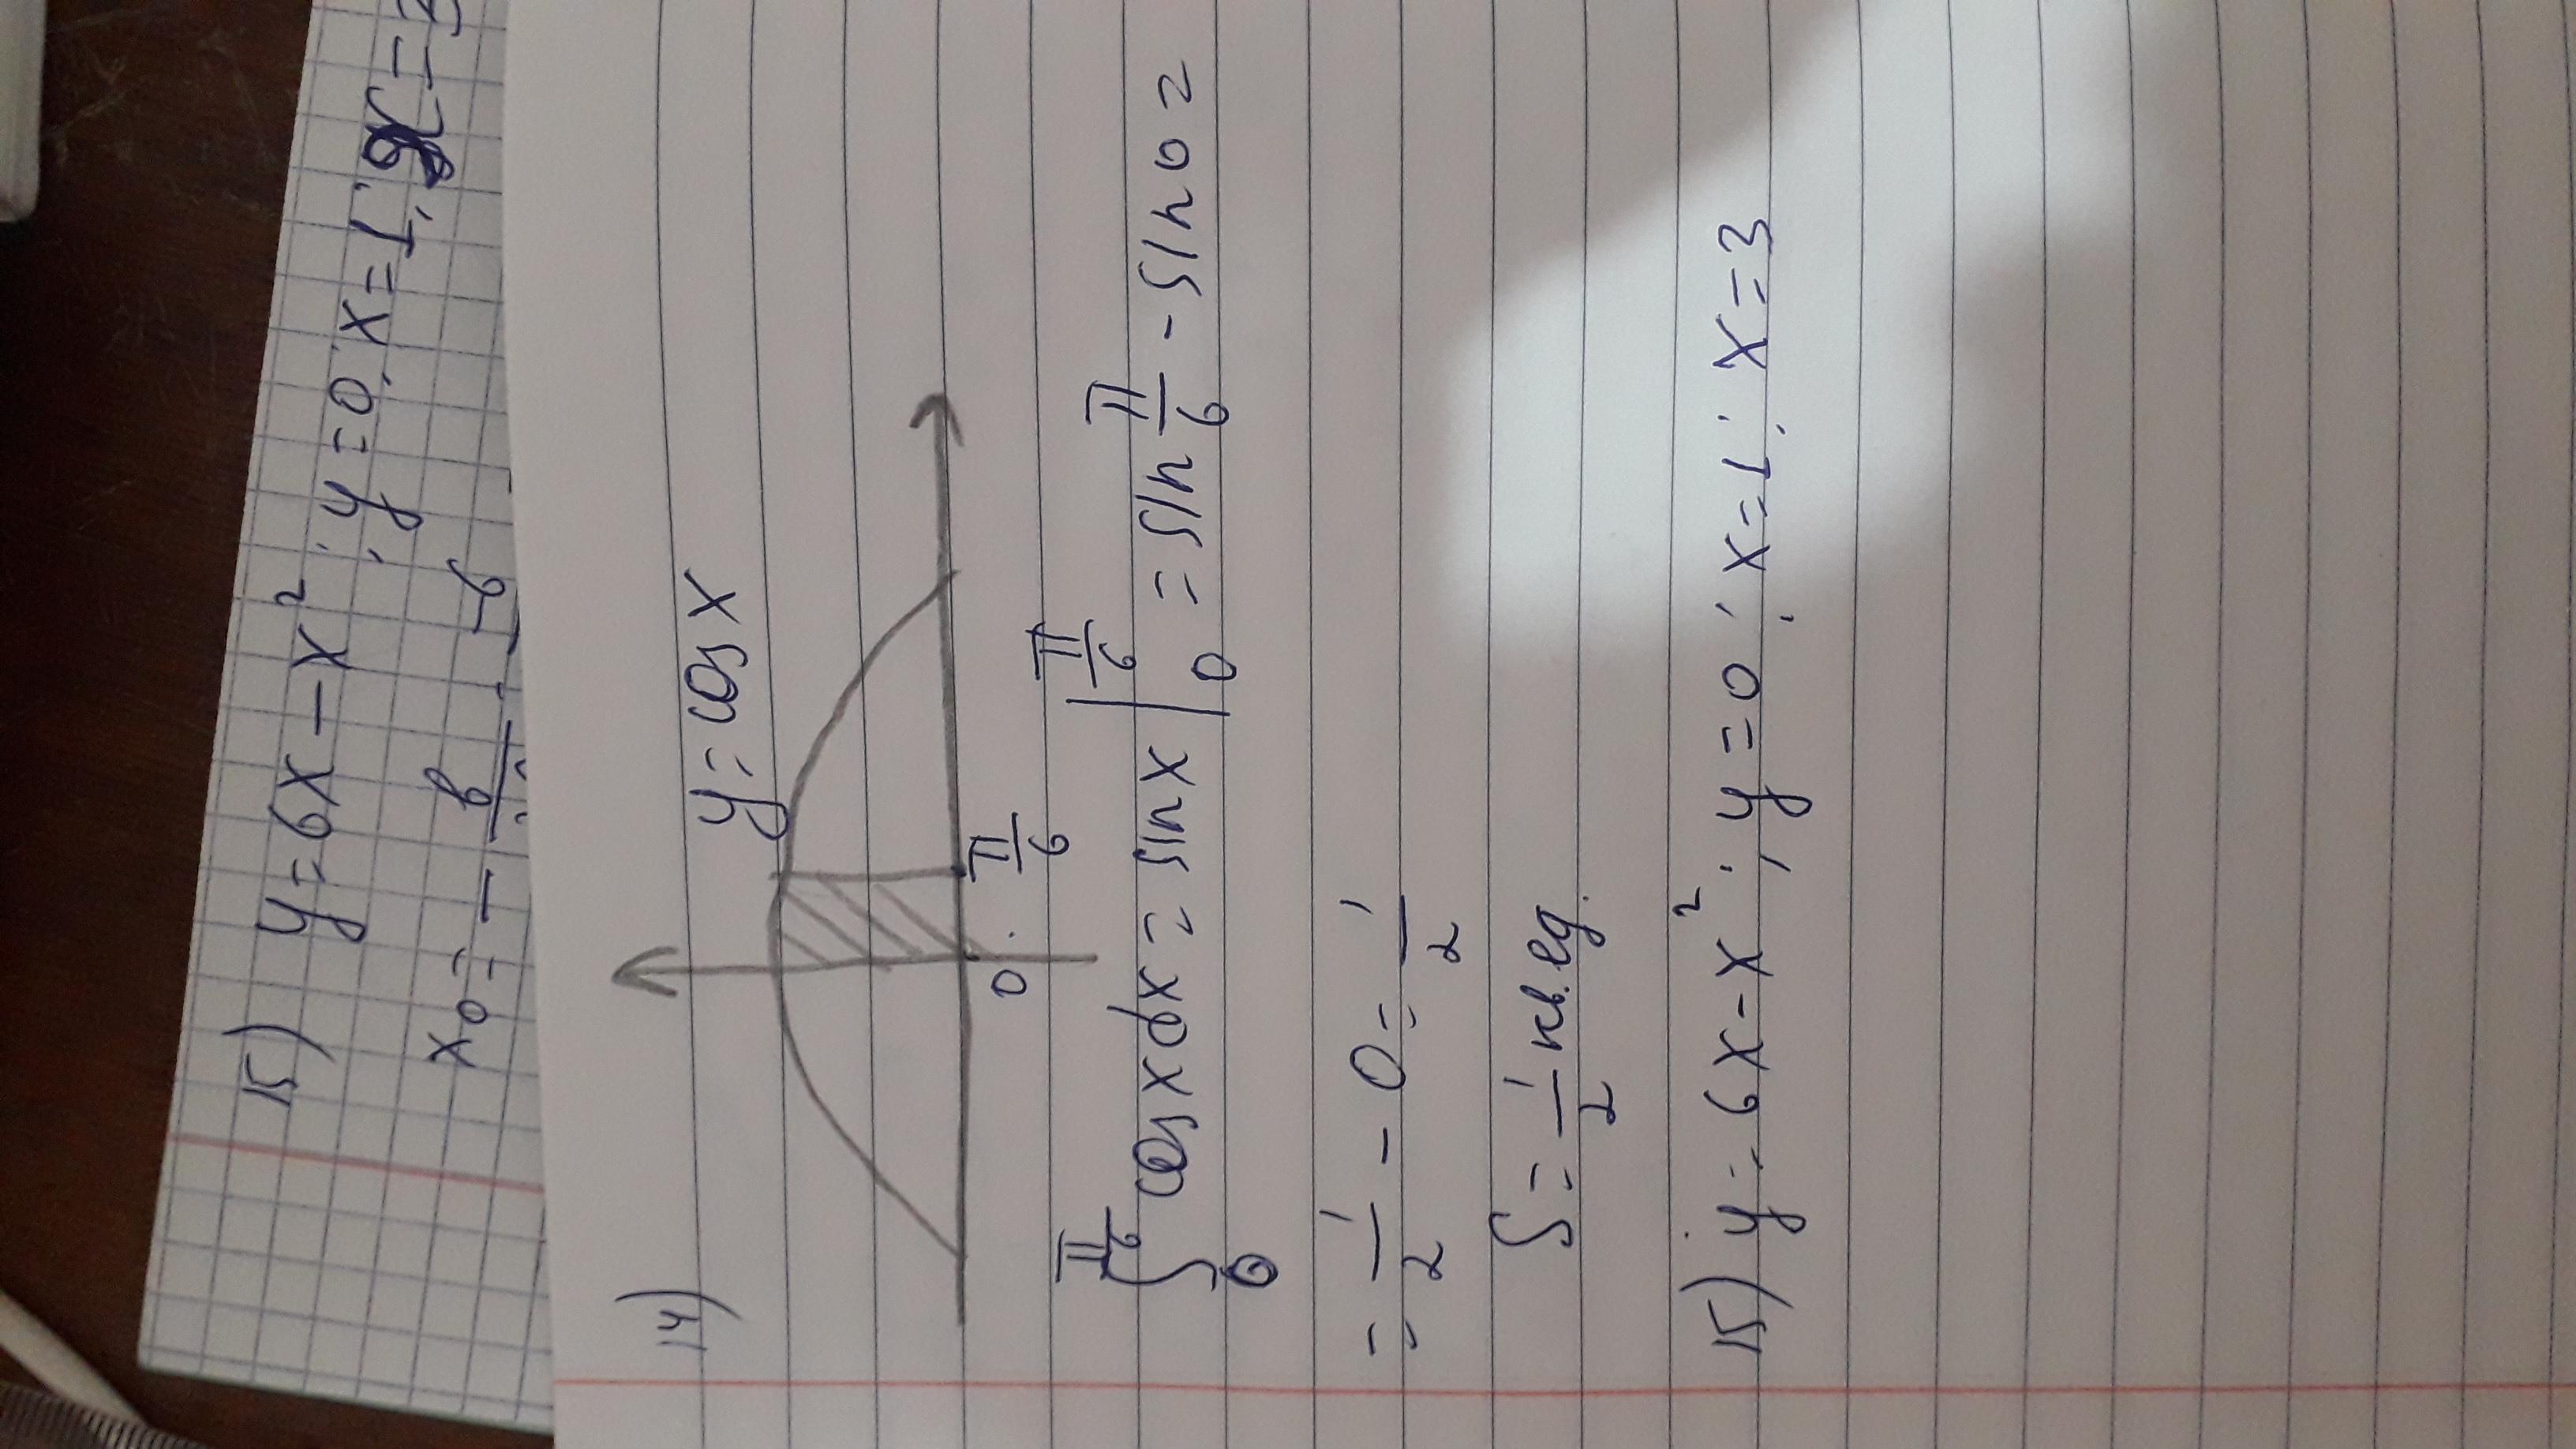 15) y = 6x - x²; y = 0; x = 1; x = 3
x₀ = - b
14) y = cos x
0 π/6
∫₀^(π/6) cos x dx = sin x |₀^(π/6) = sin π/6 - sin 0 =
= 1/2 - 0 = 1/2
S = 1/2 кв. ед.
15) y = 6x - x²; y = 0; x = 1; x = 3